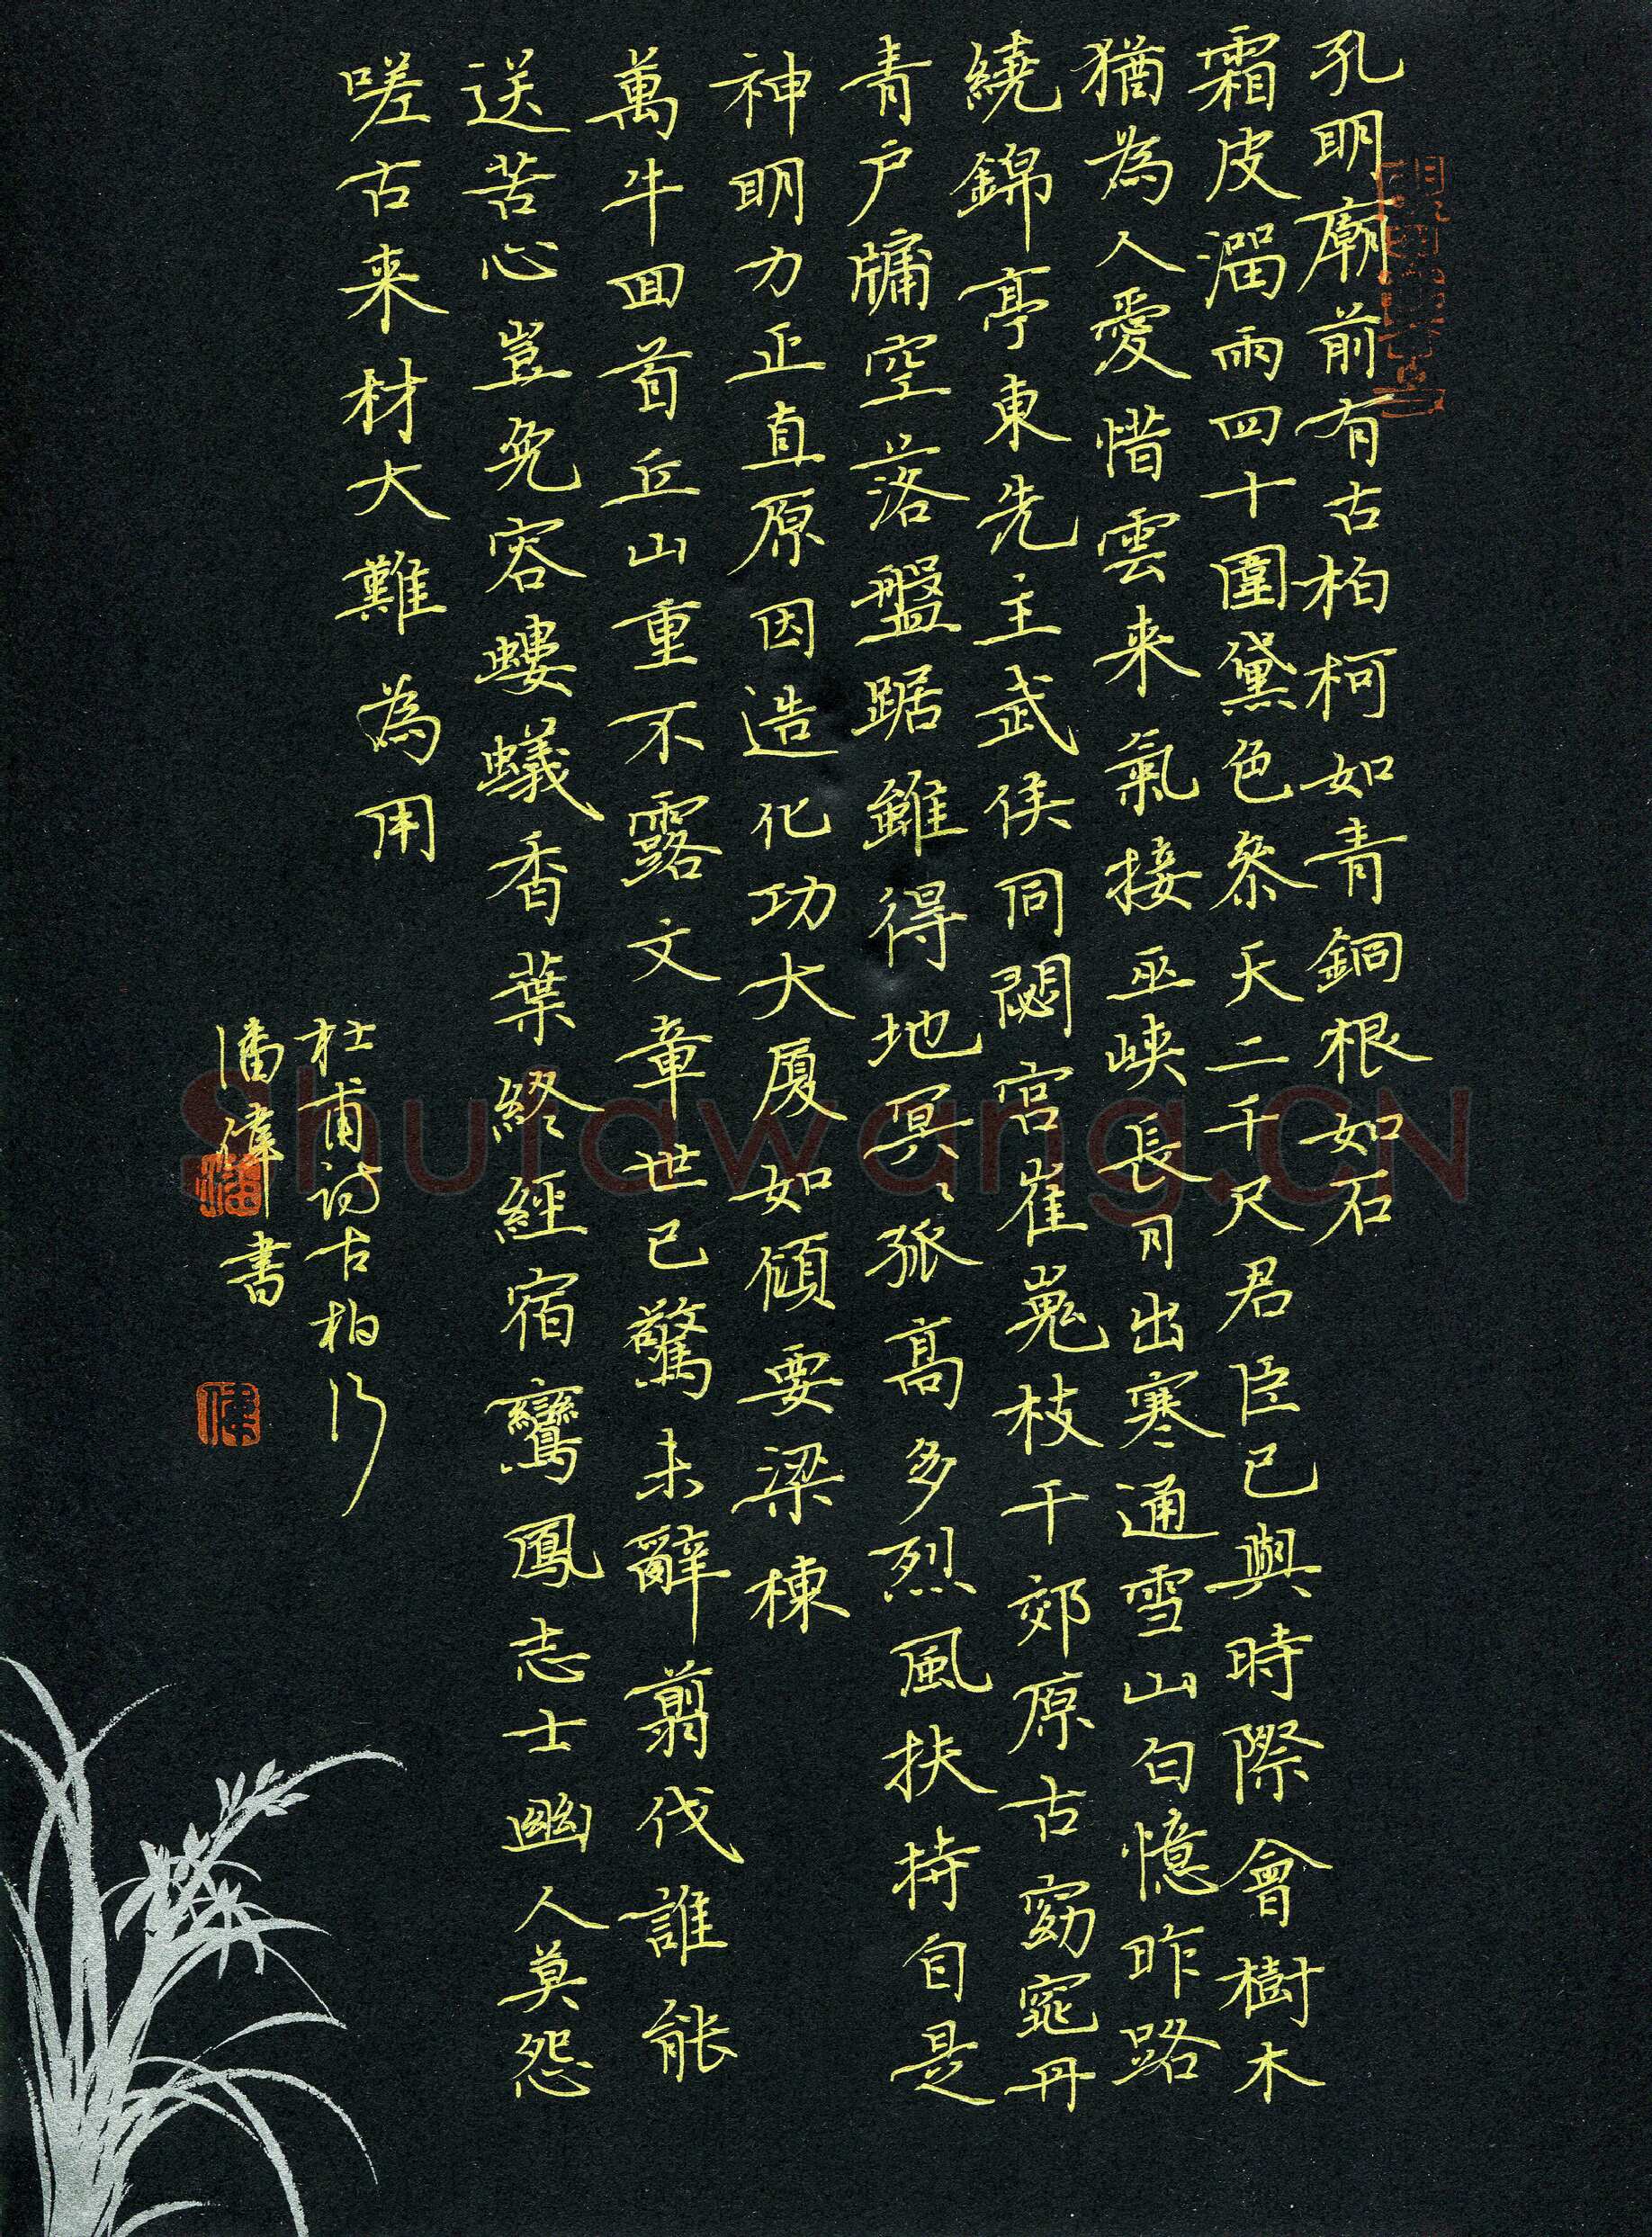 孔明廟前有古柏柯如青銅根如石
霜皮溜雨四十圍黛色參天二千尺君臣已與時際會樹木
猶為人愛惜雲来氣接巫峽長月出寒通雪山白憶昨路
繞錦亭東先主武侯同閟宮崔嵬枝干郊原古窈窕丹
青户牖空落落盤踞雖得地冥冥孤高多烈風扶持自是
神明力正直原因造化功大厦如傾要梁棟
萬牛回首丘山重不露文章世已驚未辭翦伐誰能
送苦心豈免容螻蟻香葉終經宿鸞鳳志士幽人莫怨
嗟古来材大難為用
杜甫詩古柏行
潘偉書
Shufawang.CN